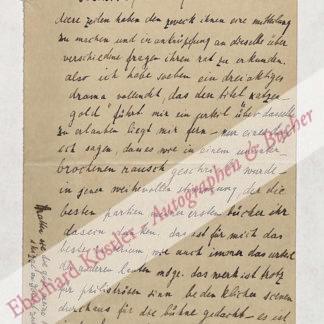 diese zeilen haben den zweck ihnen eine mitteilung
zu machen und in anknüpfung an dieselbe über
verschiedene fragen ihren rat zu erkunden.
also ich habe soeben ein dreiaktiges
drama vollendet, das den titel "katzen-
gold" führt mir ein urteil über dasselbe
zu erlauben liegt mir fern – nur
ich sagen, dass es wie in einem ununter-
brochenen rausch geschrieben wurde –
in jener weihevollen stimmung der die
besten partien meiner ersten bücher ihr
dasein danken. das ist für mich das
beste kriterium wie auch immer das urteil
der anderen lauten möge. das werk ist trotz
der philiströsen sinn beden
durchaus für die bühne gedacht – es ist
Eberhard Köstler - Autographen & Bücher